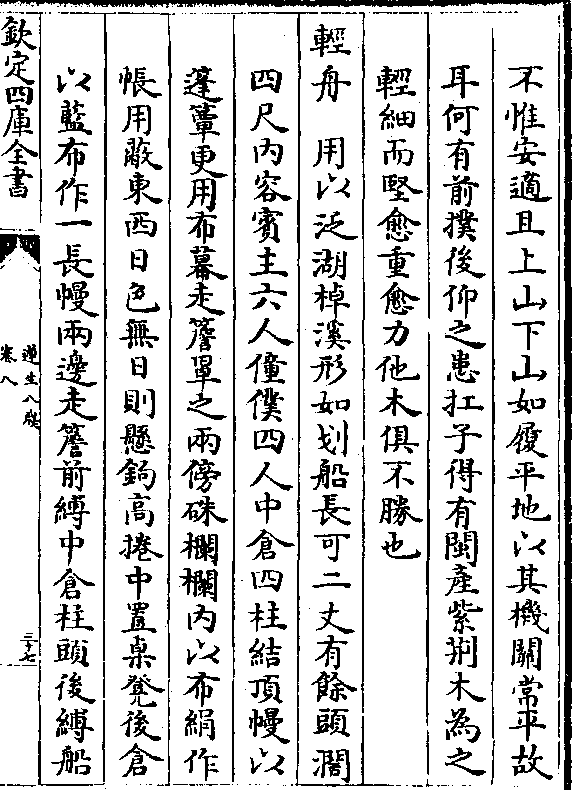 不惟安適且上山下山如履平地以其機關常平故
耳何有前撲後仰之患扛子得有閩產紫荆木為之
輕細而堅愈重愈力他木俱不勝也
輕舟　用以泛湖棹溪形如刬船長可二丈有餘頭濶
四尺内容賓主六人僮僕四人中倉四柱結頂幔以
篷簟更用布幕走簷罩之兩傍硃欄欄内以布絹作
帳用蔽東西日色無日則懸鈎高捲中置桌凳後倉
以藍布作一長幔兩邊走簷前縛中倉柱頭後縛船
欽定四庫全書
遵生八牋
卷八
三十七